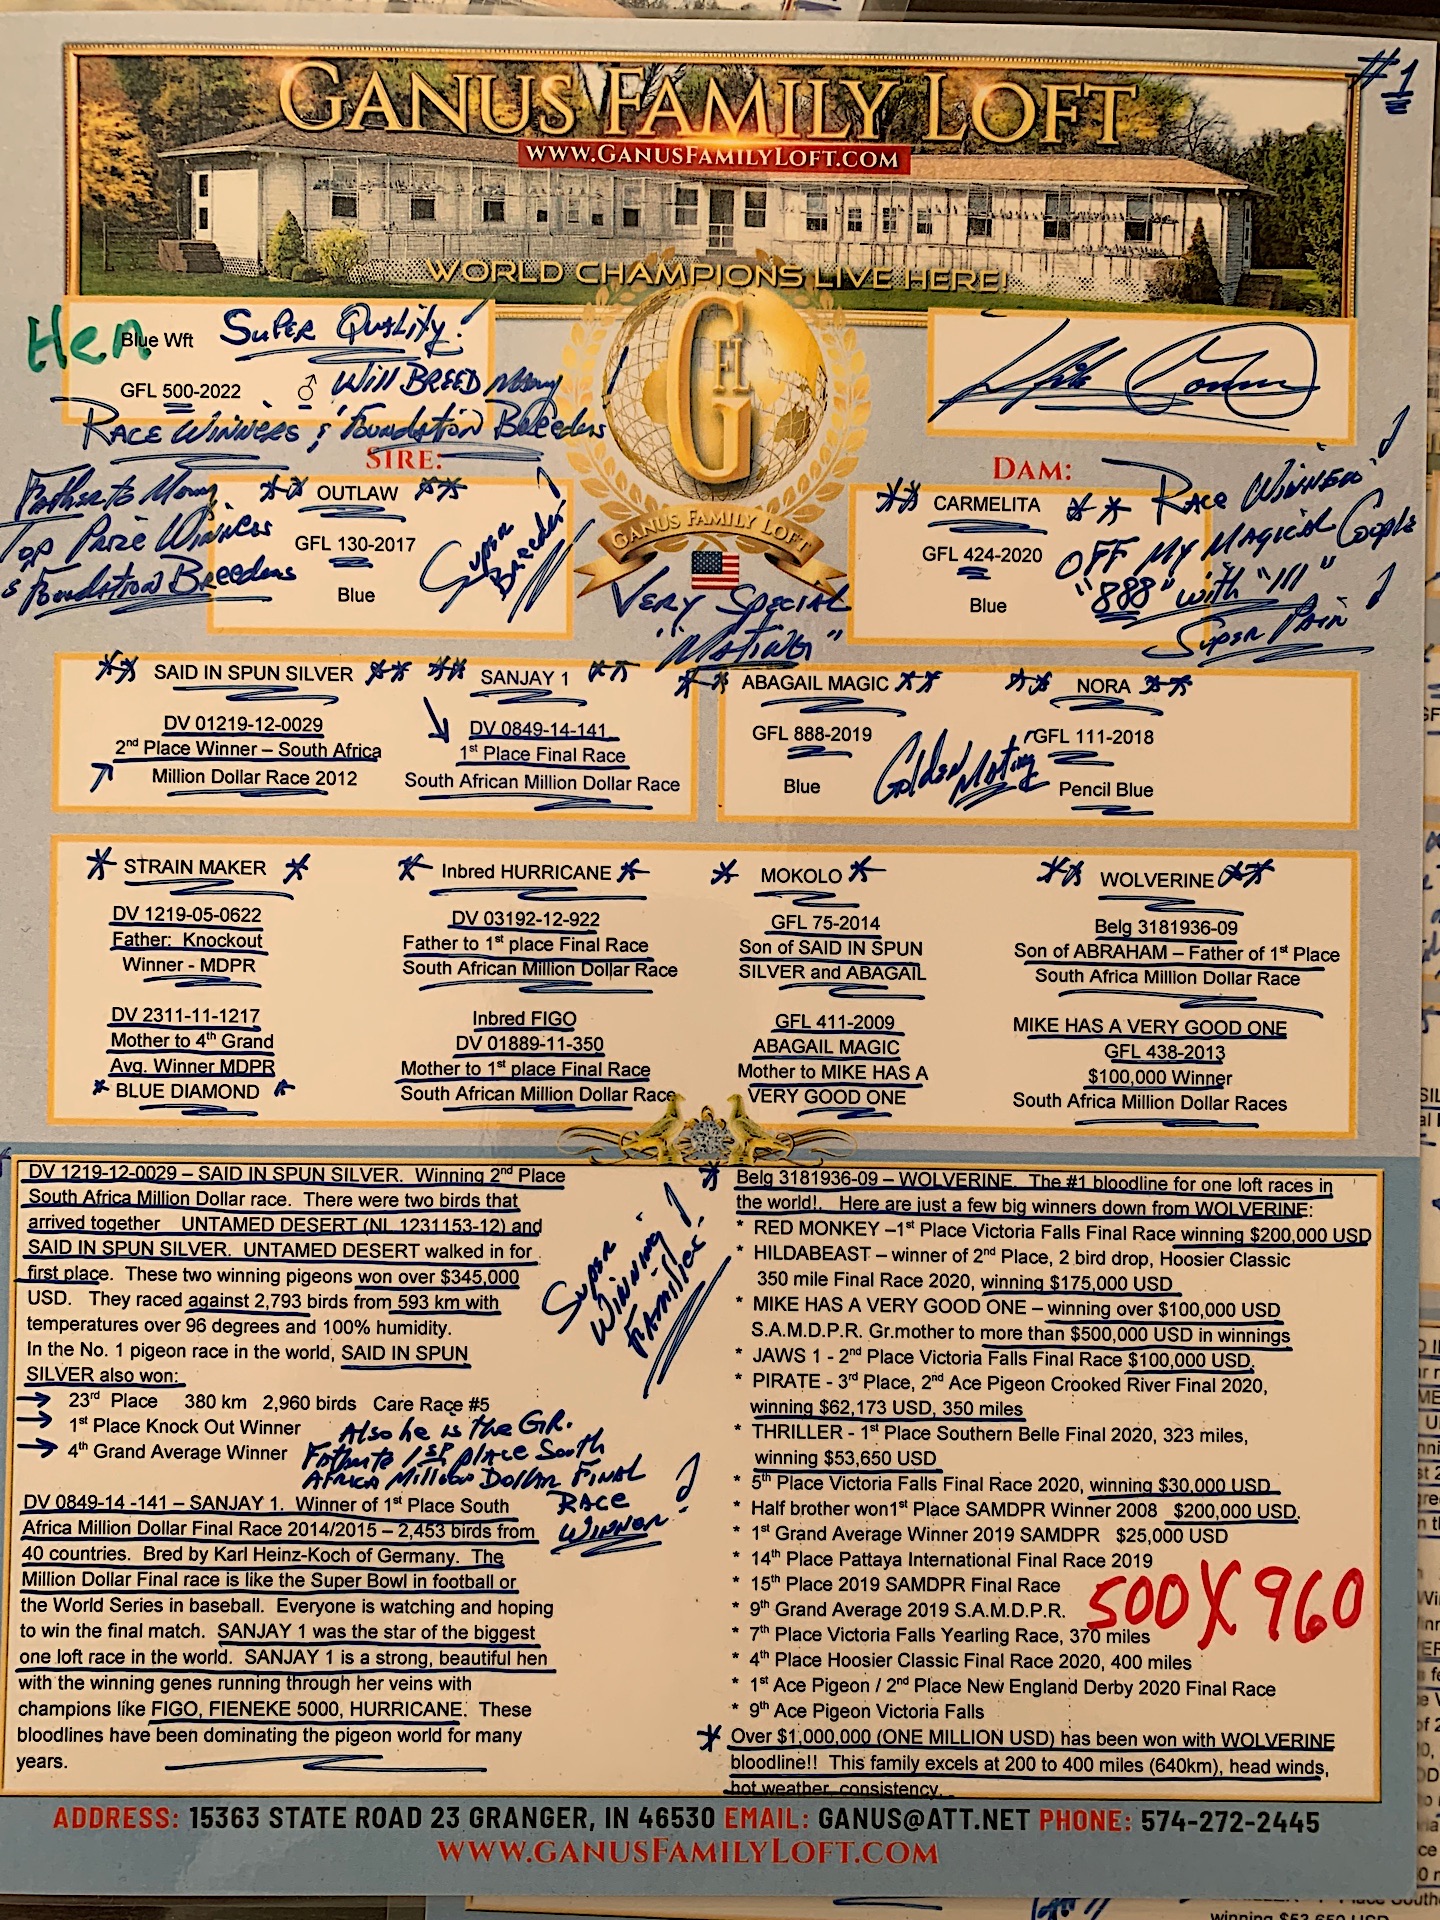 #1
GANUS FAMILY LOFT
WWW.GANUSFAMILYLOFT.COM
WORLD CHAMPIONS LIVE HERE!
Hen
Blue Wft
Super Quality!
GFL 500-2022 ♂ Will BREED Many!
RACE WINNERS & Foundation Breeders
GFL
GANUS FAMILY LOFT
SIRE:
Father to Many
Top Prize Winners
& Foundation Breeders
** OUTLAW **
GFL 130-2017
Blue
Super Breeder!
Very Special
"Mating"
DAM:
** CARMELITA **
GFL 424-2020
Blue
Race Winner!
OFF My Magical Couple
"888" with "111"
Super Pair!
** SAID IN SPUN SILVER **
DV 01219-12-0029
2nd Place Winner – South Africa
Million Dollar Race 2012
** SANJAY 1 **
DV 0849-14-141
1st Place Final Race
South African Million Dollar Race
** ABAGAIL MAGIC **
GFL 888-2019
Blue
Golden Mating
** NORA **
GFL 111-2018
Pencil Blue
* STRAIN MAKER *
DV 1219-05-0622
Father: Knockout
Winner - MDPR
DV 2311-11-1217
Mother to 4th Grand
Avg. Winner MDPR
* BLUE DIAMOND *
* Inbred HURRICANE *
DV 03192-12-922
Father to 1st place Final Race
South African Million Dollar Race
Inbred FIGO
DV 01889-11-350
Mother to 1st place Final Race
South African Million Dollar Race
* MOKOLO *
GFL 75-2014
Son of SAID IN SPUN
SILVER and ABAGAIL
GFL 411-2009
ABAGAIL MAGIC
Mother to MIKE HAS A
VERY GOOD ONE
** WOLVERINE **
Belg 3181936-09
Son of ABRAHAM – Father of 1st Place
South Africa Million Dollar Race
MIKE HAS A VERY GOOD ONE
GFL 438-2013
$100,000 Winner
South Africa Million Dollar Races
DV 1219-12-0029 – SAID IN SPUN SILVER. Winning 2nd Place
South Africa Million Dollar race. There were two birds that
arrived together UNTAMED DESERT (NL 1231153-12) and
SAID IN SPUN SILVER. UNTAMED DESERT walked in for
first place. These two winning pigeons won over $345,000
USD. They raced against 2,793 birds from 593 km with
temperatures over 96 degrees and 100% humidity.
In the No. 1 pigeon race in the world, SAID IN SPUN
SILVER also won:
23rd Place 380 km 2,960 birds Care Race #5
1st Place Knock Out Winner
4th Grand Average Winner
Also he is the GR.
Father to 1st place South
Africa Million Dollar Final
Race
Winner!
DV 0849-14 -141 – SANJAY 1. Winner of 1st Place South
Africa Million Dollar Final Race 2014/2015 – 2,453 birds from
40 countries. Bred by Karl Heinz-Koch of Germany. The
Million Dollar Final race is like the Super Bowl in football or
the World Series in baseball. Everyone is watching and hoping
to win the final match. SANJAY 1 was the star of the biggest
one loft race in the world. SANJAY 1 is a strong, beautiful hen
with the winning genes running through her veins with
champions like FIGO, FIENEKE 5000, HURRICANE. These
bloodlines have been dominating the pigeon world for many
years.
Super Winning Families!
* Belg 3181936-09 – WOLVERINE. The #1 bloodline for one loft races in
the world!. Here are just a few big winners down from WOLVERINE:
* RED MONKEY –1st Place Victoria Falls Final Race winning $200,000 USD
* HILDABEAST – winner of 2nd Place, 2 bird drop, Hoosier Classic
350 mile Final Race 2020, winning $175,000 USD
* MIKE HAS A VERY GOOD ONE – winning over $100,000 USD
S.A.M.D.P.R. Gr.mother to more than $500,000 USD in winnings
* JAWS 1 - 2nd Place Victoria Falls Final Race $100,000 USD.
* PIRATE - 3rd Place, 2nd Ace Pigeon Crooked River Final 2020,
winning $62,173 USD, 350 miles
* THRILLER - 1st Place Southern Belle Final 2020, 323 miles,
winning $53,650 USD
* 5th Place Victoria Falls Final Race 2020, winning $30,000 USD
* Half brother won1st Place SAMDPR Winner 2008 $200,000 USD.
* 1st Grand Average Winner 2019 SAMDPR $25,000 USD
* 14th Place Pattaya International Final Race 2019
* 15th Place 2019 SAMDPR Final Race
* 9th Grand Average 2019 S.A.M.D.P.R.
* 7th Place Victoria Falls Yearling Race, 370 miles
* 4th Place Hoosier Classic Final Race 2020, 400 miles
* 1st Ace Pigeon / 2nd Place New England Derby 2020 Final Race
* 9th Ace Pigeon Victoria Falls
500X960
* Over $1,000,000 (ONE MILLION USD) has been won with WOLVERINE
bloodline!! This family excels at 200 to 400 miles (640km), head winds,
hot weather, consistency.
ADDRESS: 15363 STATE ROAD 23 GRANGER, IN 46530 EMAIL: GANUS@ATT.NET PHONE: 574-272-2445
WWW.GANUSFAMILYLOFT.COM
winning $53,650 USD